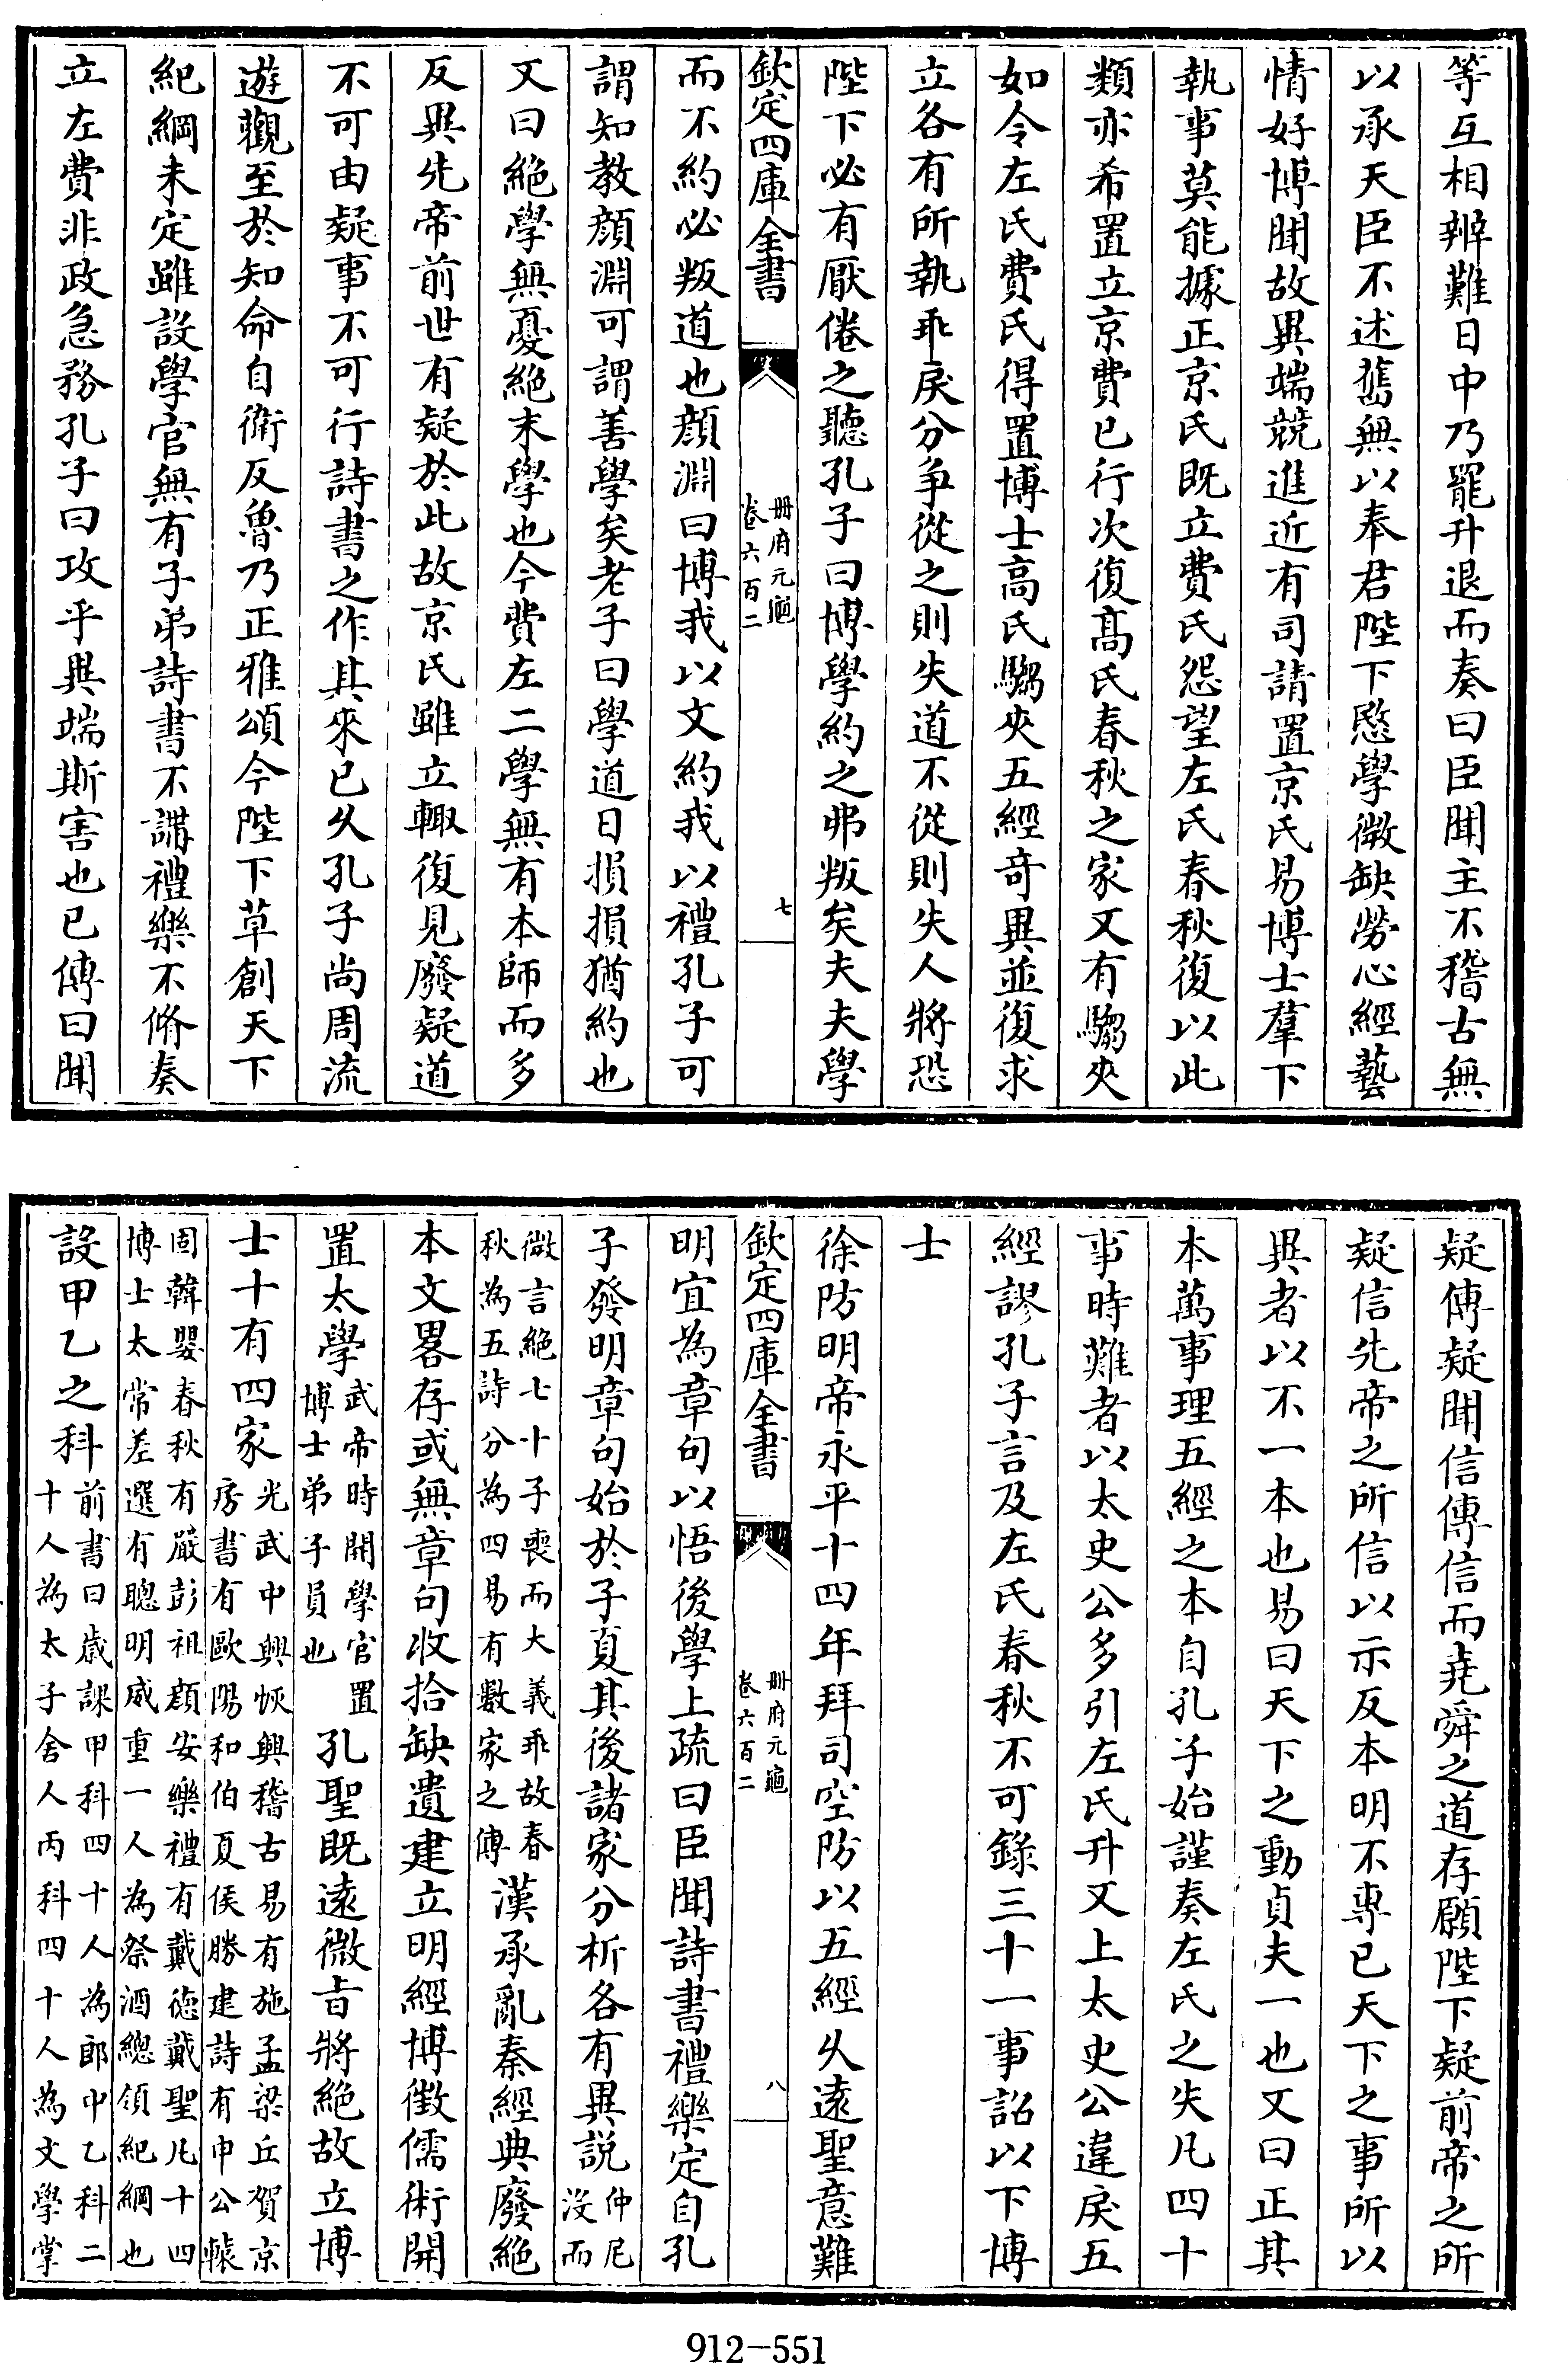 等互相辨難日中乃罷升退而奏曰臣聞主不稽古無
以承天臣不述舊無以奉君陛下愍學微缺勞心經藝
情好博聞故異端競進近有司請置京氏易博士羣下
執事莫能據正京氏既立費氏怨望左氏春秋復以此
類亦希置立京費已行次復髙氏春秋之家又有騶夾
如令左氏費氏得置博士高氏騶夾五經奇異並復求
立各有所執乖戾分争從之則失道不從則失人將恐
陛下必有厭倦之聽孔子曰博學約之弗叛矣夫夫學
欽定四庫全書
冊府元龜
卷六百二
七
而不約必叛道也顔淵曰博我以文約我以禮孔子可
謂知教顔淵可謂善學矣老子曰學道日損損猶約也
又曰絶學無憂絶末學也今費左二學無有本師而多
反異先帝前世有疑於此故京氏雖立輙復見廢疑道
不可由疑事不可行詩書之作其來已久孔子尚周流
遊觀至於知命自衛反魯乃正雅頌今陛下草創天下
紀綱未定雖設學官無有子弟詩書不講禮樂不脩奏
立左費非政急務孔子曰攻乎異端斯害也已傳曰聞
疑傳疑聞信傳信而堯舜之道存願陛下疑前帝之所
疑信先帝之所信以示反本明不專已天下之事所以
異者以不一本也易曰天下之動貞夫一也又曰正其
本萬事理五經之本自孔子始謹奏左氏之失凡四十
事時難者以太史公多引左氏升又上太史公違戾五
經謬孔子言及左氏春秋不可錄三十一事詔以下博
士
徐防明帝永平十四年拜司空防以五經久遠聖意難
欽定四庫全書
冊府元龜
卷六百二
八
明宜為章句以悟後學上疏曰臣聞詩書禮樂定自孔
子發明章句始於子夏其後諸家分析各有異説仲尼
没而
微言絶七十子喪而大義乖故春
秋為五詩分為四易有數家之傳漢承亂秦經典廢絶
本文畧存或無章句收拾缺遺建立明經博徴儒術開
置太學武帝時開學官置
博士弟子員也孔聖既遠微旨將絶故立博
士十有四家光武中興恢興稽古易有施孟梁丘賀京
房書有歐陽和伯夏侯勝建詩有申公轅
固韓嬰春秋有嚴彭祖顔安樂禮有戴德戴聖凡十四
博士太常差選有聰明威重一人為祭酒總領紀綱也
設甲乙之科前書曰歲課甲科四十人為郎中乙科二
十人為太子舍人丙科四十人為文學掌
912-551